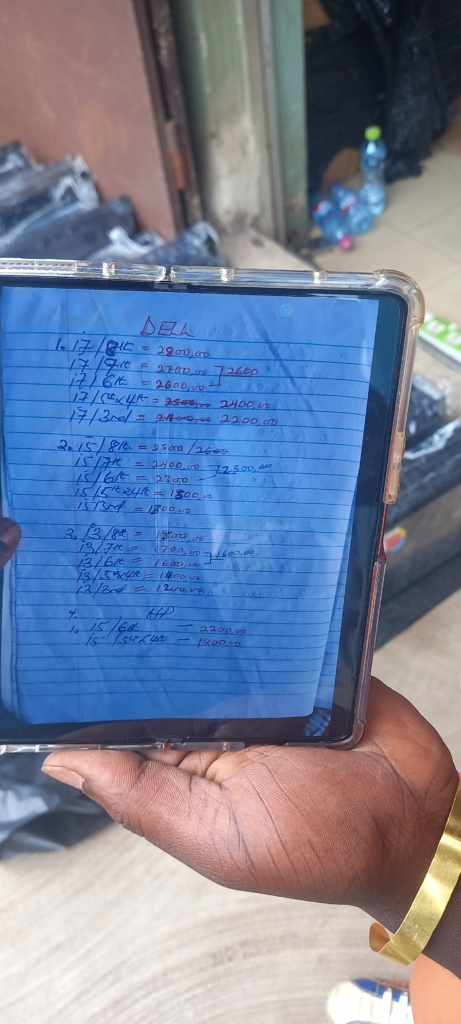 DELL
1. 17/8th = 2800,00
17/7th = 2700,00 ] 2600
17/6th = 2600,00
17/5th x 4th = 2500,00 2400,00
17/3rd = 2200,00
2. 15/8th = 2500/2600
15/7th = 2400,00 ] 2300,00
15/6th = 2300
15/5th x 4th = 1800,00
15/3rd = 1800,00
3. 13/8th = 1800,00
13/7th = 1700,00 ] 1600,00
13/6th = 1600,00
13/5th x 4th = 1400,00
13/3rd = 1200,00
4. HP
1. 15/6th — 2200,00
15 /5th x 4th — 1800,00